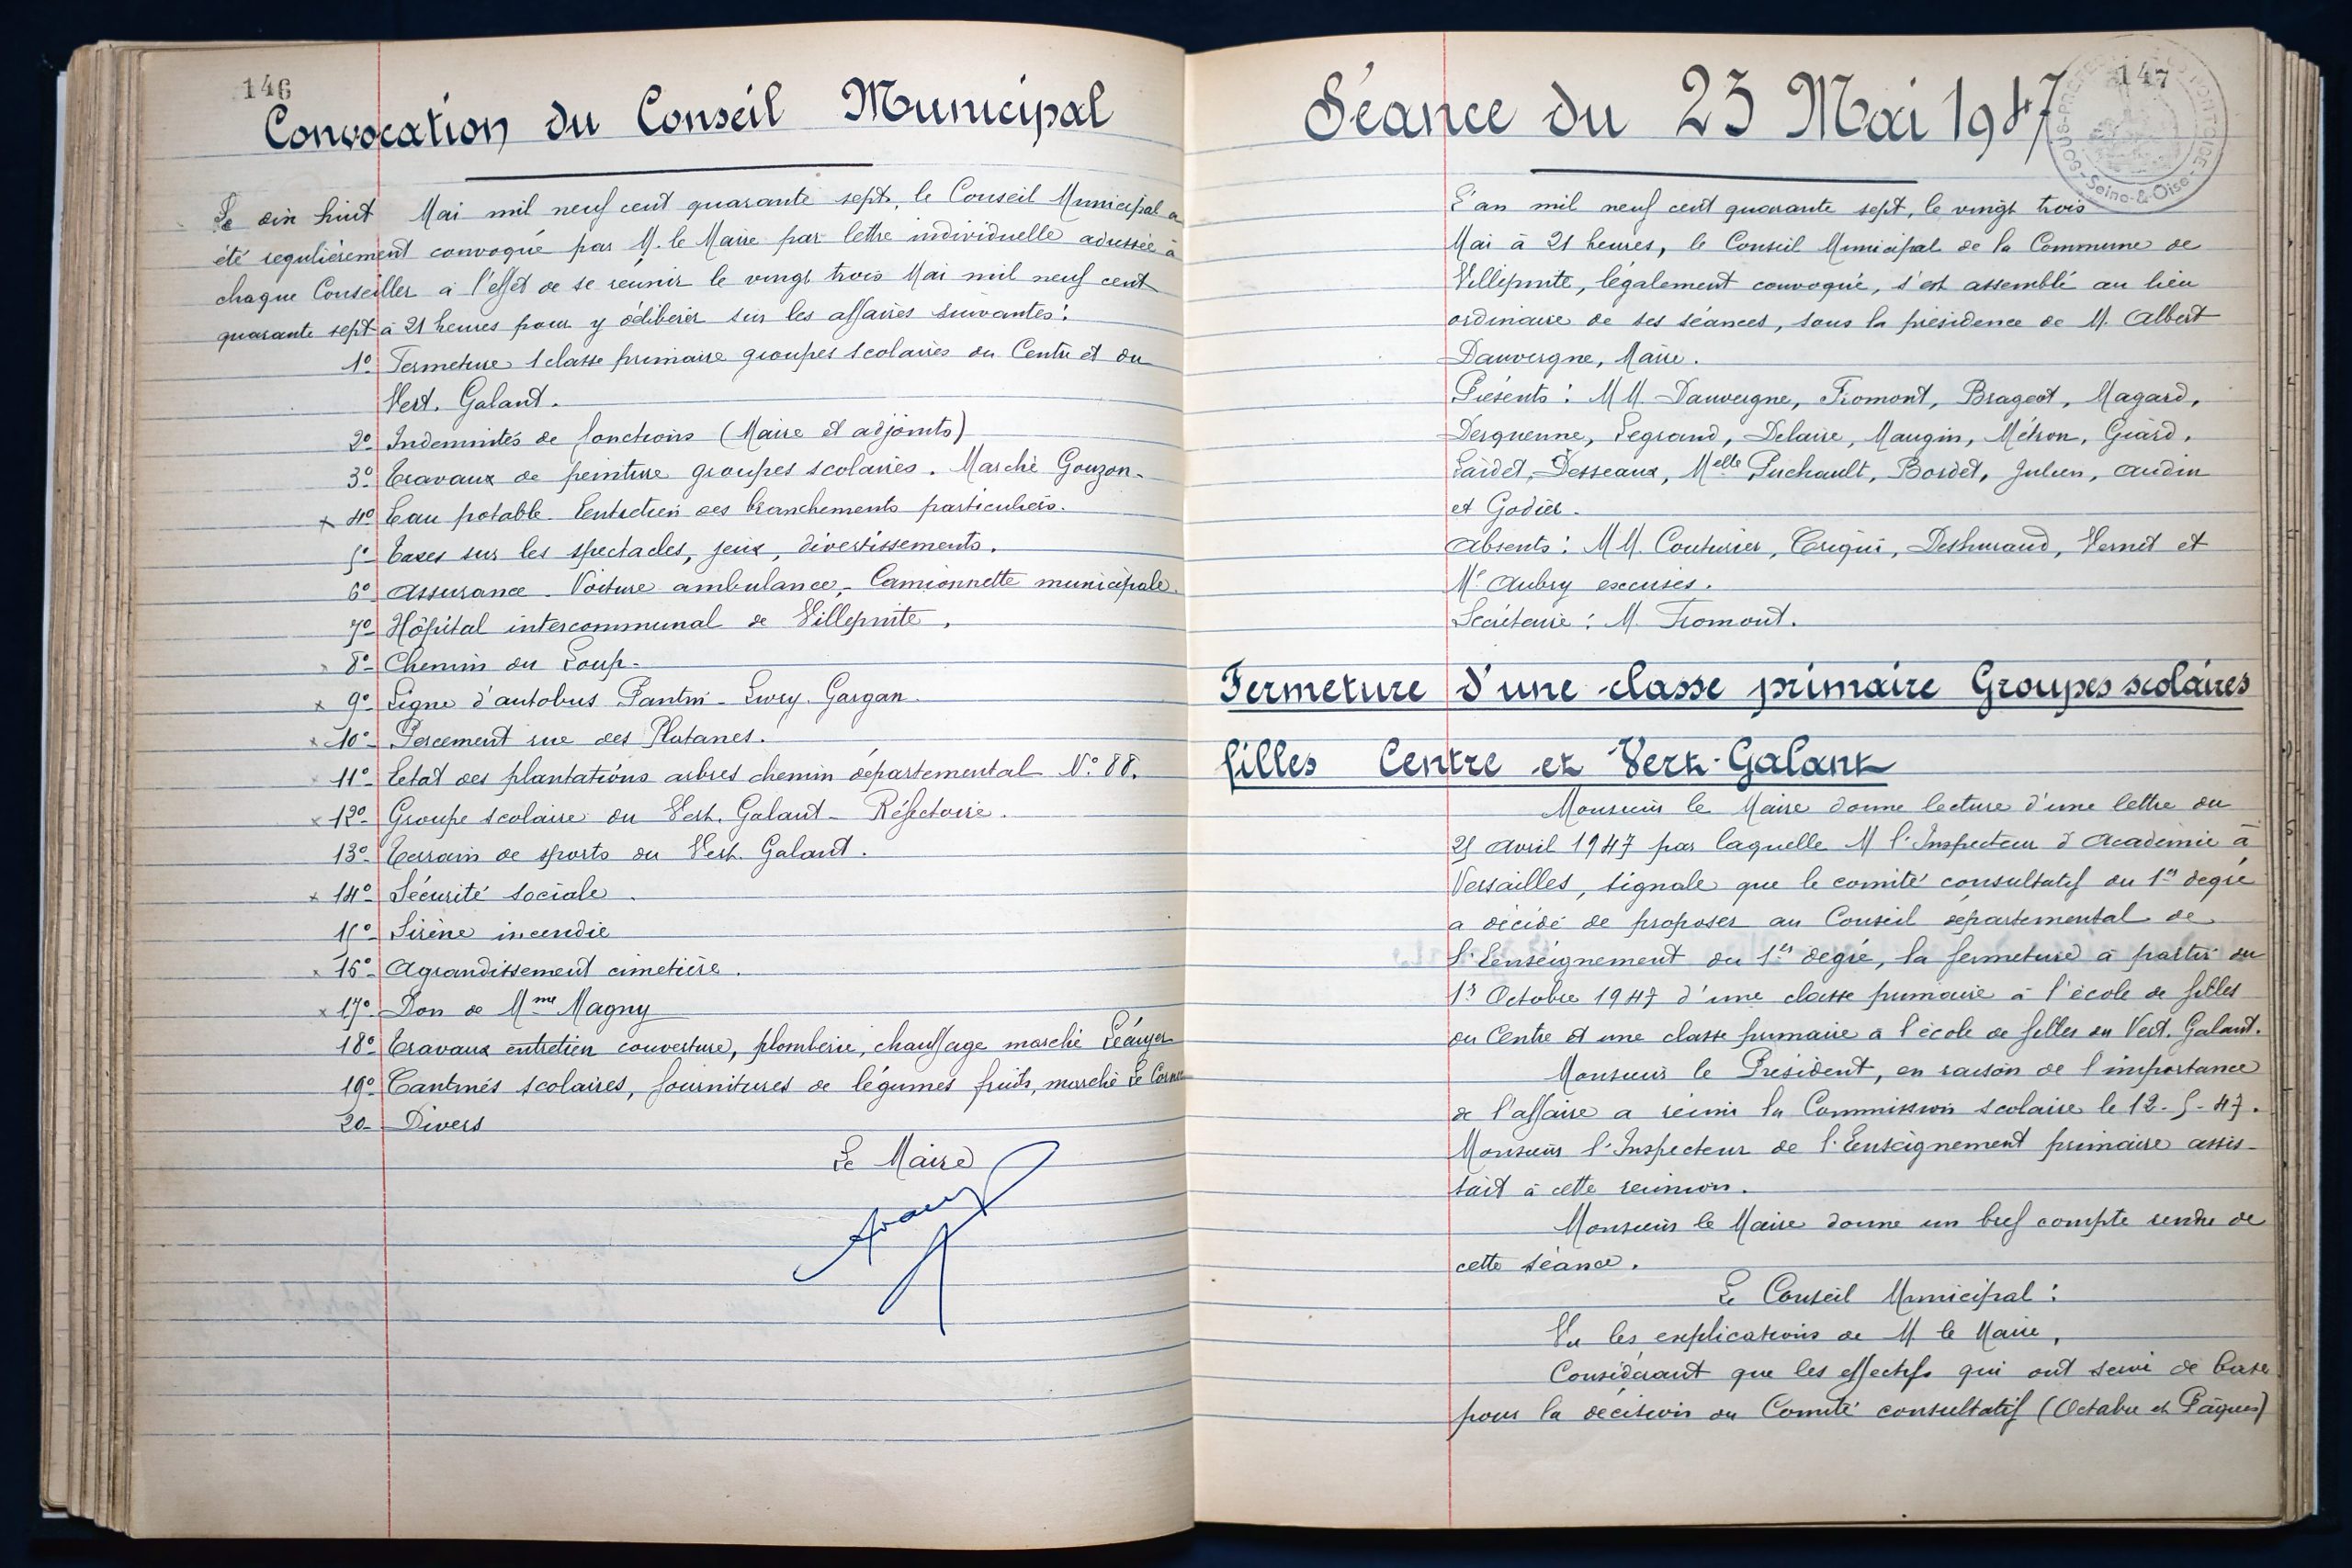 146
Convocation du Conseil Municipal
Le dix huit Mai mil neuf cent quarante sept, le Conseil Municipal a
été regulièrement convoqué par M. le Maire par lettre individuelle adressée à
chaque Conseiller à l'effet de se réunir le vingt trois Mai mil neuf cent
quarante sept à 21 heures pour y délibérer sur les affaires suivantes :
1º Fermeture 1 classe primaire groupes scolaires du Centre et du
Vert. Galant.
2º Indemnités de fonctions (Maire et adjoints)
3º Travaux de peinture groupes scolaires. Marché Gouzon-
x 4º Eau potable. Entretien des branchements particuliers.
5º Taxes sur les spectacles, jeux, divertissements.
6º Assurance - Voiture ambulance, - Camionnette municipale.
7º Hôpital intercommunal de Villepinte.
x 8º- Chemin du Loup-
x 9º- Ligne d'autobus Pantin - Livry. Gargan.
x 10º- Percement rue des Platanes.
x 11º- Etat des plantations arbres chemin départemental Nº 88.
x 12º- Groupe scolaire du Vert. Galant - Réfectoire.
13º- Terrain de sports du Vert. Galant.
x 14º- Sécurité sociale.
15º- Sirène incendie
x 16º- Agrandissement cimetière.
x 17º- Don de Mme Magny
18º- Travaux entretien couverture, plomberie, chauffage marché Lécuyer
19º- Cantines scolaires, fournitures de légumes fruits, marché Le Corne
20- Divers
Le Maire
147
SOUS-PRÉFECTURE DE PONTOISE - Seine-&-Oise -
Séance du 23 Mai 1947
L'an mil neuf cent quarante sept, le vingt trois
Mai à 21 heures, le Conseil Municipal de la Commune de
Villepinte, légalement convoqué, s'est assemblé au lieu
ordinaire de ses séances, sous la présidence de M. Albert
Dauvergne, Maire.
Présents : MM. Dauvergne, Fromont, Brageot, Magard,
Derquenne, Legrand, Delaire, Maugin, Métron, Giard,
Lardet, Desseaux, Melle Puchault, Bordet, Julien, Audin
et Godier.
Absents : MM. Couturier, Criqui, Deshuraud, Vernet et
Me Aubry excusés.
Secrétaire : M. Fromont.
Fermeture d'une classe primaire Groupes scolaires
filles Centre et Vert-Galant
Monsieur le Maire donne lecture d'une lettre du
25 Avril 1947 par laquelle M l'Inspecteur d'Académie à
Versailles, signale que le comité consultatif du 1er degré
a décidé de proposer au Conseil départemental de
l'Enseignement du 1er degré, la fermeture à partir du
1er Octobre 1947 d'une classe primaire à l'école de filles
du Centre et une classe primaire à l'école de filles du Vert. Galant.
Monsieur le Président, en raison de l'importance
de l'affaire a réuni la Commission scolaire le 12-5-47.
Monsieur l'Inspecteur de l'Enseignement primaire assis-
tait à cette réunion.
Monsieur le Maire donne un bref compte rendu de
cette séance.
Le Conseil Municipal :
Vu les explications de M le Maire,
Considérant que les effectifs qui ont servi de base
pour la décision du Comité consultatif (Octobre et Pâques)